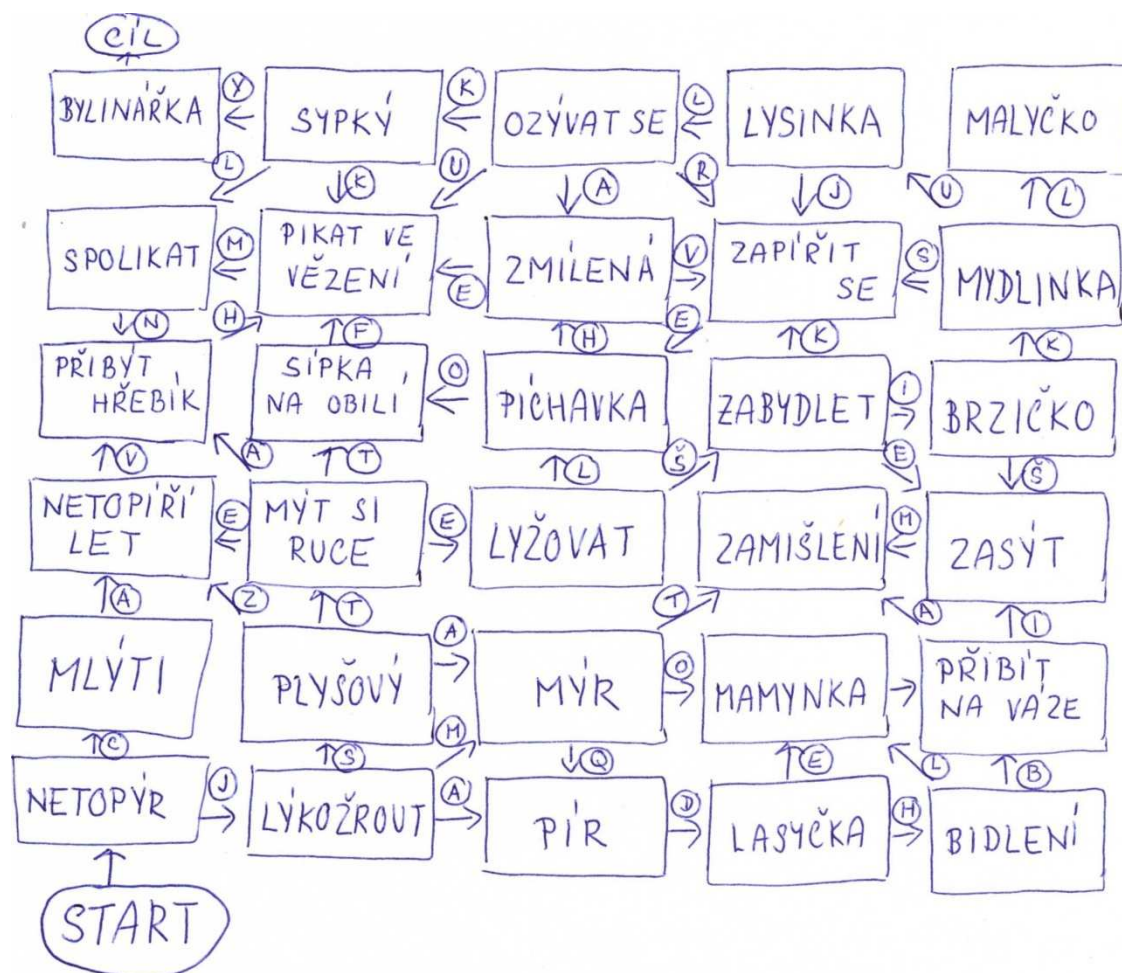 CÍL
BYLINÁŘKA Y SYPKÝ K OZÝVAT SE L LYSINKA MALYČKO
L K U A R J U L
SPOLIKAT M PIKAT VE VĚZENÍ E ZMÍLENÁ V ZAPÍŘIT SE S MYDLINKA
N H F H E K K
PŘIBÝT HŘEBÍK SÍPKA NA OBILÍ O PÍCHAVKA ZABYDLET I BRZIČKO
V A T L Š E Š
NETOPÍŘÍ LET E MÝT SI RUCE E LYŽOVAT ZAMIŠLENÍ M ZASÝT
Á Z T T A I
MLÝTI PLYŠOVÝ A MÝR O MAMYNKA PŘIBÍT NA VÁZE
C S M Q E L B
NETOPÝR J LÝKOŽROUT A PÍR D LASYČKA H BIDLENÍ
START